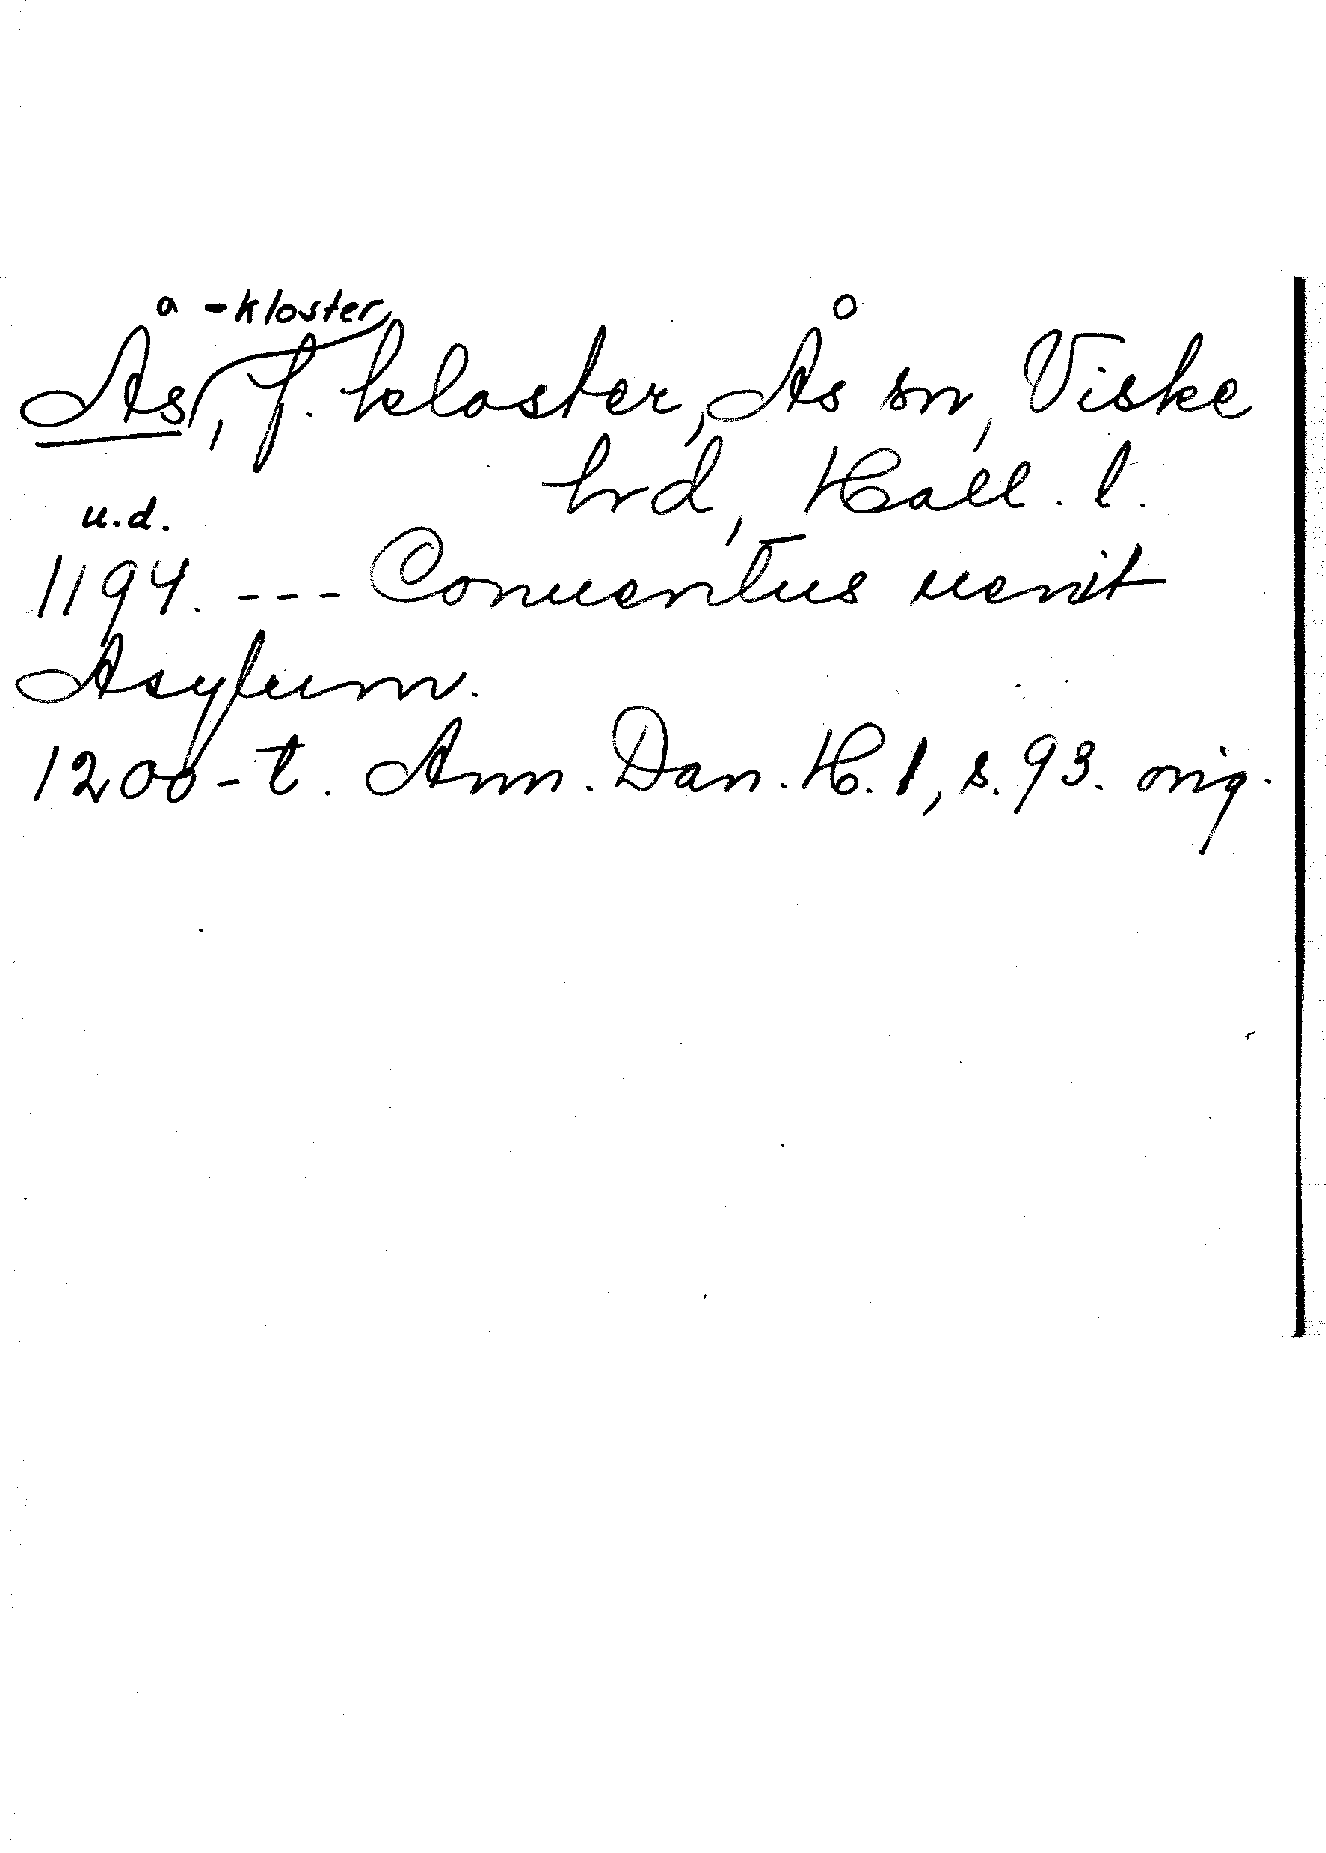 -kloster
Ås, f. kloster, Ås sn, Viske
hrd, Hall. l.
u.d.
1194. --- Conuentus uenit
Asylum.
1200-t. Ann. Dan. H. 1, s. 93. orig.